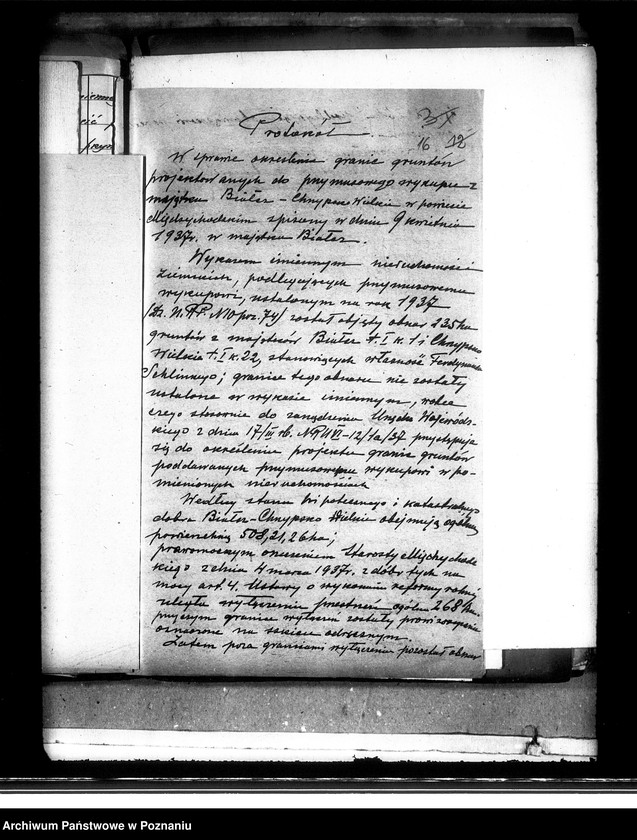 Protokół.
16 12
W sprawie określenia granic gruntów
projektowanych do przymusowego wykupu z
majątku Białcz – Chrzypsko Wielkie w powiecie
Międzychodzkim spisany w dniu 9 kwietnia
1937r. w majątku Białcz.
Wykazem imiennym nieruchomości
ziemskich, podlegających przymusowemu
wykupowi, ustalonym na rok 1937
(Dz. U. R.P. N10 poz. 74) został objęty obszar 235 ha
gruntów z majątków Białcz t. I k. 1 i Chrzypsko
Wielkie t. I k. 22, stanowiących własność Ferdynanda
; granice tego obszaru nie zostały
ustalone w wykazie imiennym, wobec
czego stosownie do zarządzenia Urzędu Wojewódz-
kiego z dnia 17/III rb. przystępuję
się do określenia projektu granic gruntów
poddawanych przymusowemu wykupowi w po-
mienionych nieruchomościach.
Według stanu hipotecznego i katastralnego
dobra Białcz-Chrzypsko Wielkie obejmują ogólną
powierzchnię 508,21,26 ha;
prawomocnym orzeczeniem Starosty Międzychodz-
kiego z dnia 4 marca 1937r. z dóbr tych na
mocy art. 4. Ustawy o wykonaniu reformy rolnej
uległa wyłączeniu przestrzeń ogólna 268 ha
przyczym granice wyłączeń zostały prowizorycznie
oznaczone na szkicu odręcznym.
Zatem poza granicami wyłączenia pozostał obszar
Archiwum Państwowe w Poznaniu